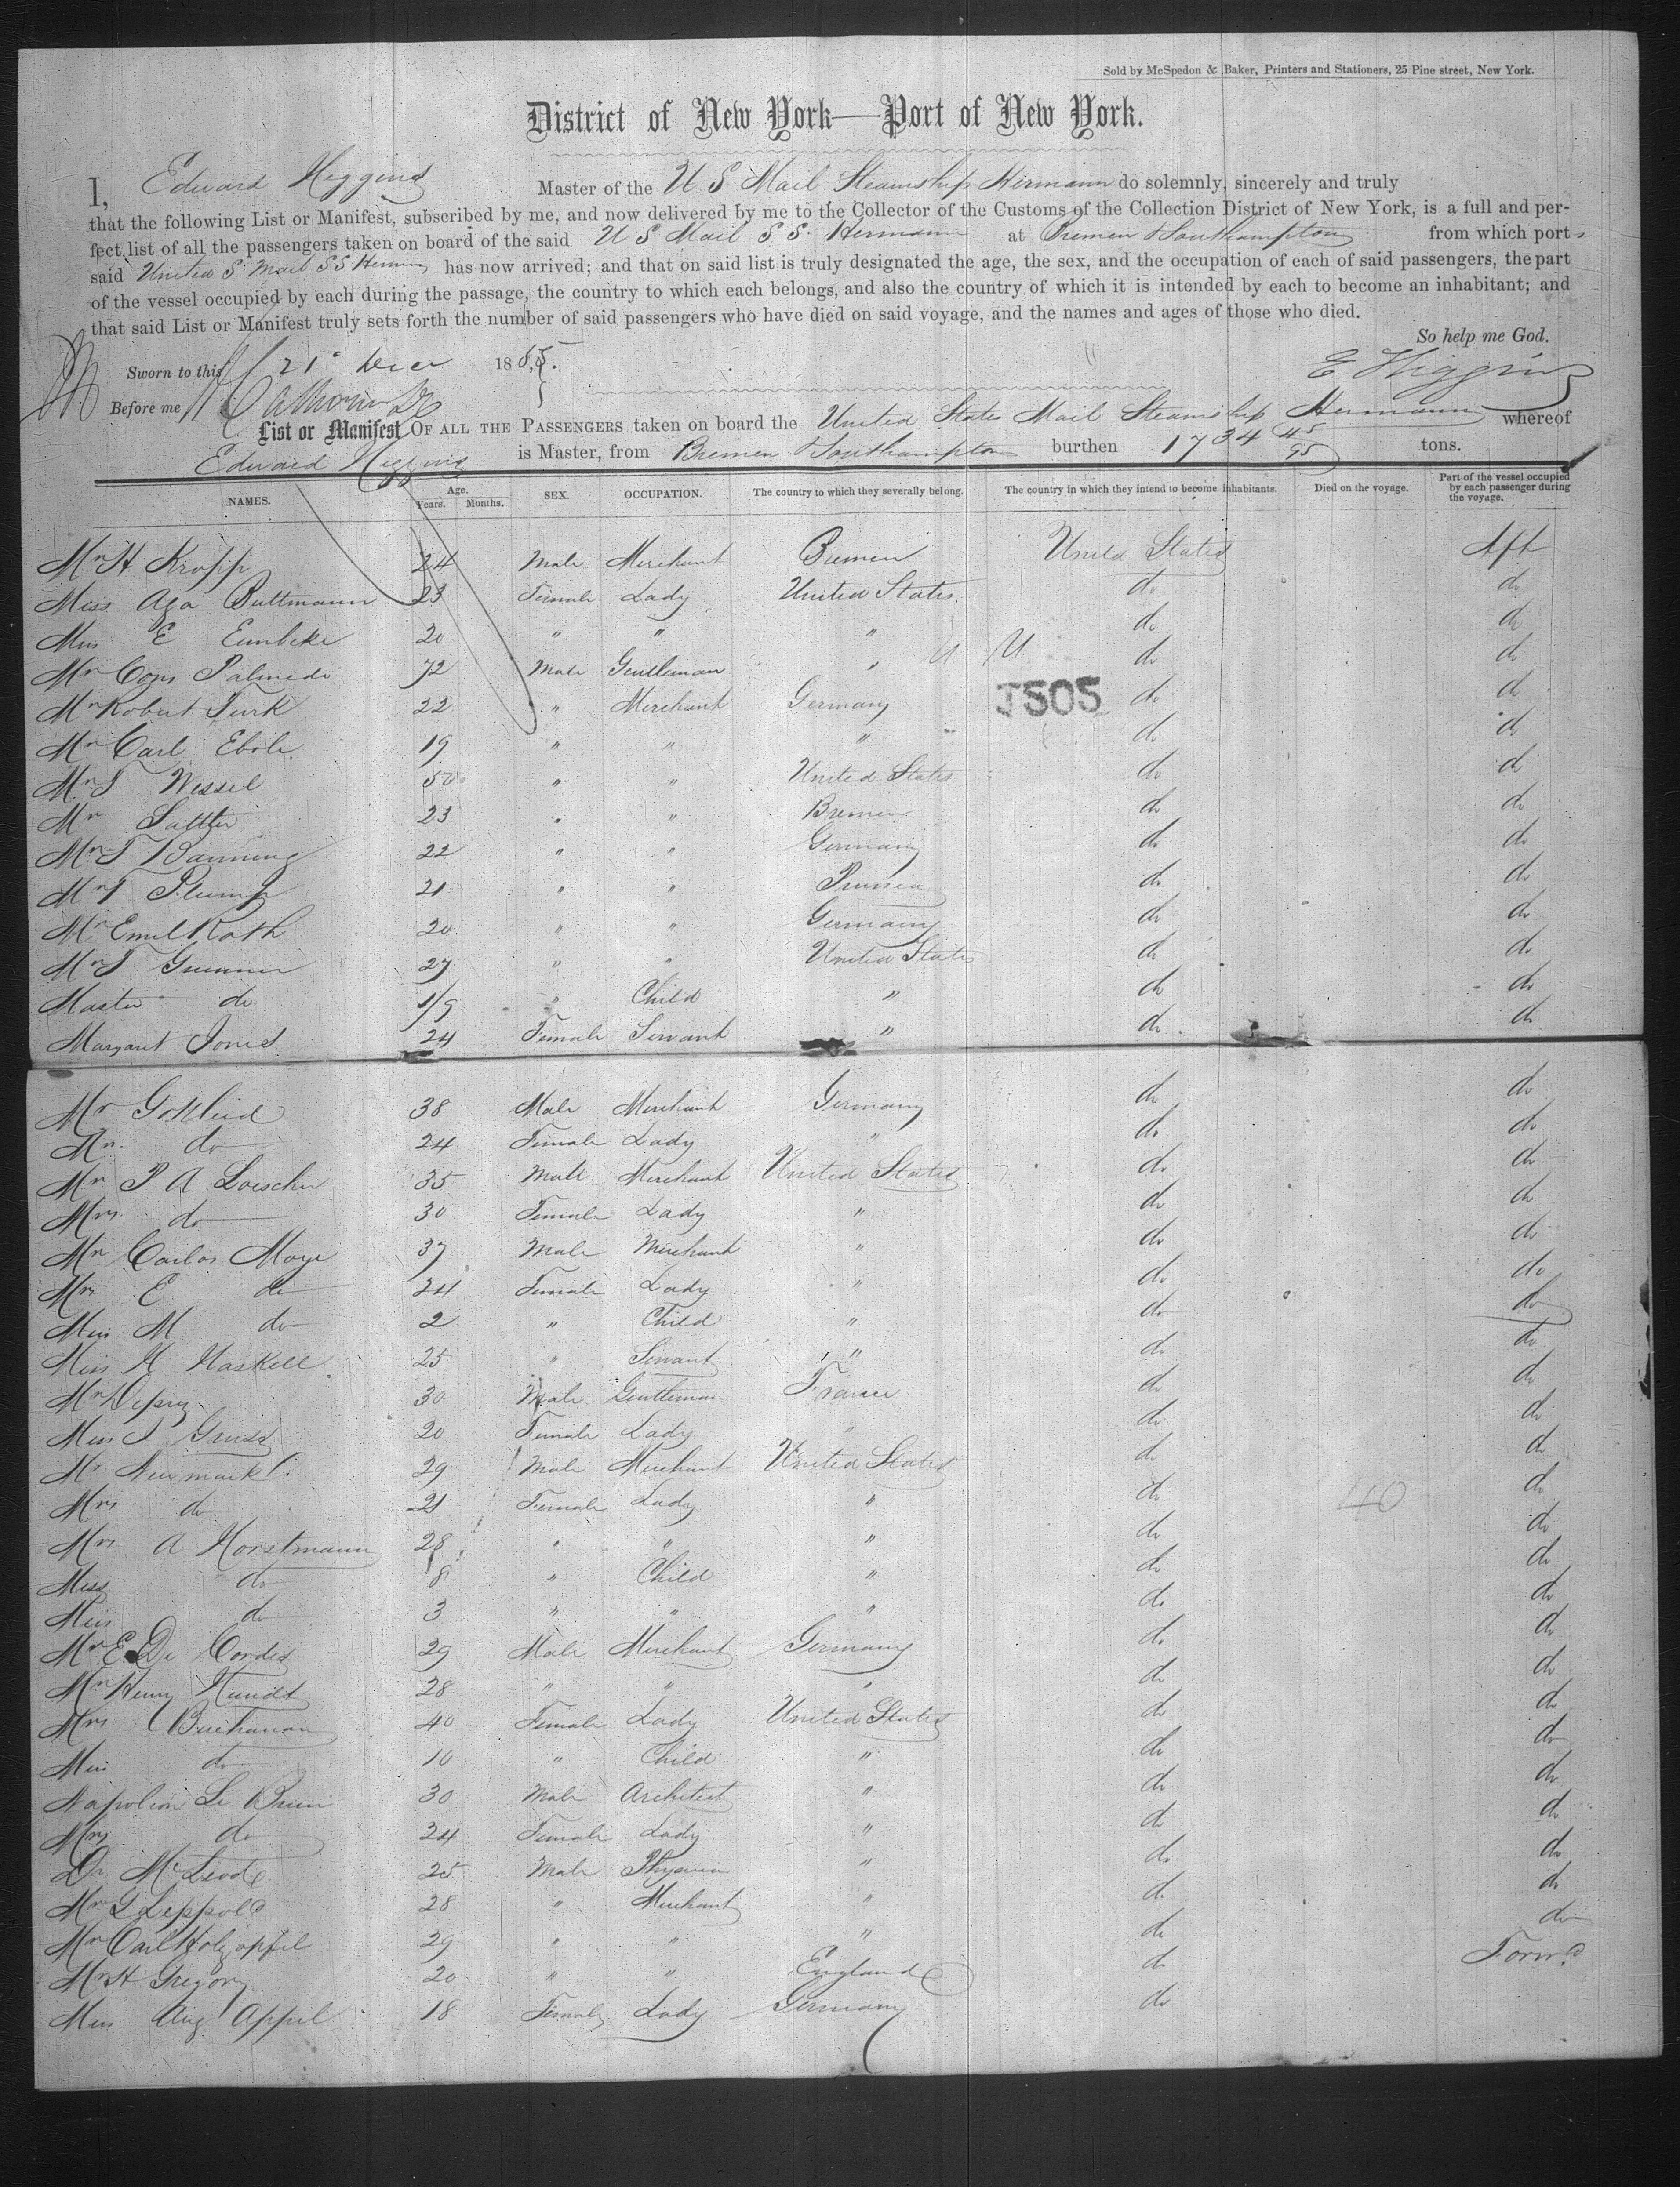 Sold by McSpedon & Baker, Printers and Stationers, 25 Pine street, New York.
District of New York—Port of New York.
I, Edward Higgins Master of the U S Mail Steamship Hermann do solemnly, sincerely and truly
that the following List or Manifest, subscribed by me, and now delivered by me to the Collector of the Customs of the Collection District of New York, is a full and per-
fect list of all the passengers taken on board of the said U S Mail S S. Hermann at Bremen & Southampton from which ports
said United S. Mail S S Hermann has now arrived; and that on said list is truly designated the age, the sex, and the occupation of each of said passengers, the part
of the vessel occupied by each during the passage, the country to which each belongs, and also the country of which it is intended by each to become an inhabitant; and
that said List or Manifest truly sets forth the number of said passengers who have died on said voyage, and the names and ages of those who died.
So help me God.
Sworn to this 21 1855. E Higgins
Before me
List or Manifest OF ALL THE PASSENGERS taken on board the United States Mail Steamship Hermann whereof
Edward Higgins is Master, from Bremen & Southampton burthen 1734 45/95 tons.
NAMES. Age. Years. Months. SEX. OCCUPATION. The country to which they severally belong. The country in which they intend to become inhabitants. Died on the voyage. Part of the vessel occupied by each passenger during the voyage.
Mr H Kropp 24 Male Merchant Bremen United States Aft
Miss Aga Buttmann 23 Female Lady United States do do
Miss E Eimbeke 20 " " " do do
Mr Cons Palmedi 72 Male Gentleman " do do
Mr Robert Turk 22 " Merchant Germany do do
J505
Mr Carl Ebole 19 " " " do do
Mr Wessel 50 " " United States do do
Mr Sattler 23 " " Bremen do do
Mr Banning 22 " " Germany do do
Mr Plump 21 " " Prussia do do
Mr Emil Roth 20 " " Germany do do
Mr 27 " " United States do do
Master do 1/9 " Child " do do
Margaret Jones 24 Female Servant " do do
Mr 38 Male Merchant Germany do do
Mrs do 24 Female Lady " do do
Mr P A Loescher 35 Male Merchant United States do do
Mrs do 30 Female Lady " do do
Mr Carlos Moye 37 Male Merchant " do do
Mrs E do 24 Female Lady " do do
Miss M do 2 " Child " do do
Miss H Haskell 25 " Servant " do do
Mr 30 Male Gentleman France do do
Miss 20 Female Lady " do do
Mr Newmark 29 Male Merchant United States do do
Mrs do 21 Female Lady " do 40 do
Mrs A Horstmann 28 " " " do do
Miss do 8 " Child " do do
Miss do 3 " " " do do
Mr E De Cordes 29 Male Merchant Germany do do
Mr Henry Hundt 28 " " " do do
Mrs Buchanan 40 Female Lady United States do do
Miss do 10 " Child " do do
Napoleon Le Brun 30 Male Architect " do do
Mrs do 24 Female Lady " do do
Dr McLeod 25 Male Physician " do do
Mr G Leppold 28 " Merchant " do do
Mr Carl Holzapfel 29 " " " do do
Mr H Gregory 20 " " England do Forwd
Miss Aug Appel 18 Female Lady Germany do